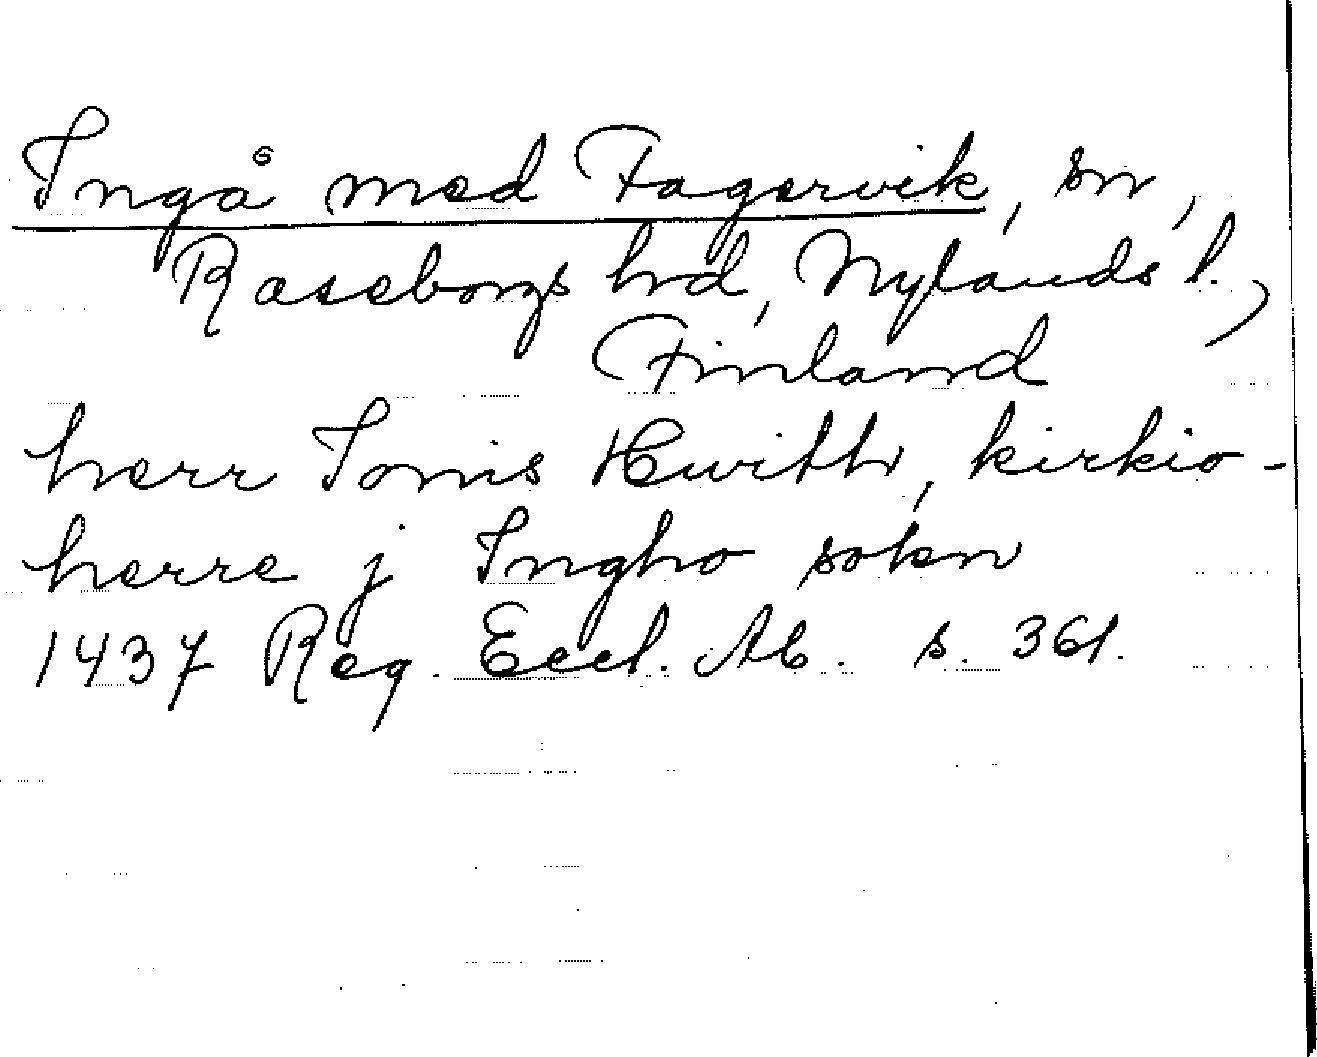 Ingå med Fagervik, sn,
Raseborgs hrd, Nylands l.,
Finland
herr Jønis Hwith, kirkio-
herre j Ingho sokn
1437 Reg. Eccl. Ab. s. 361.